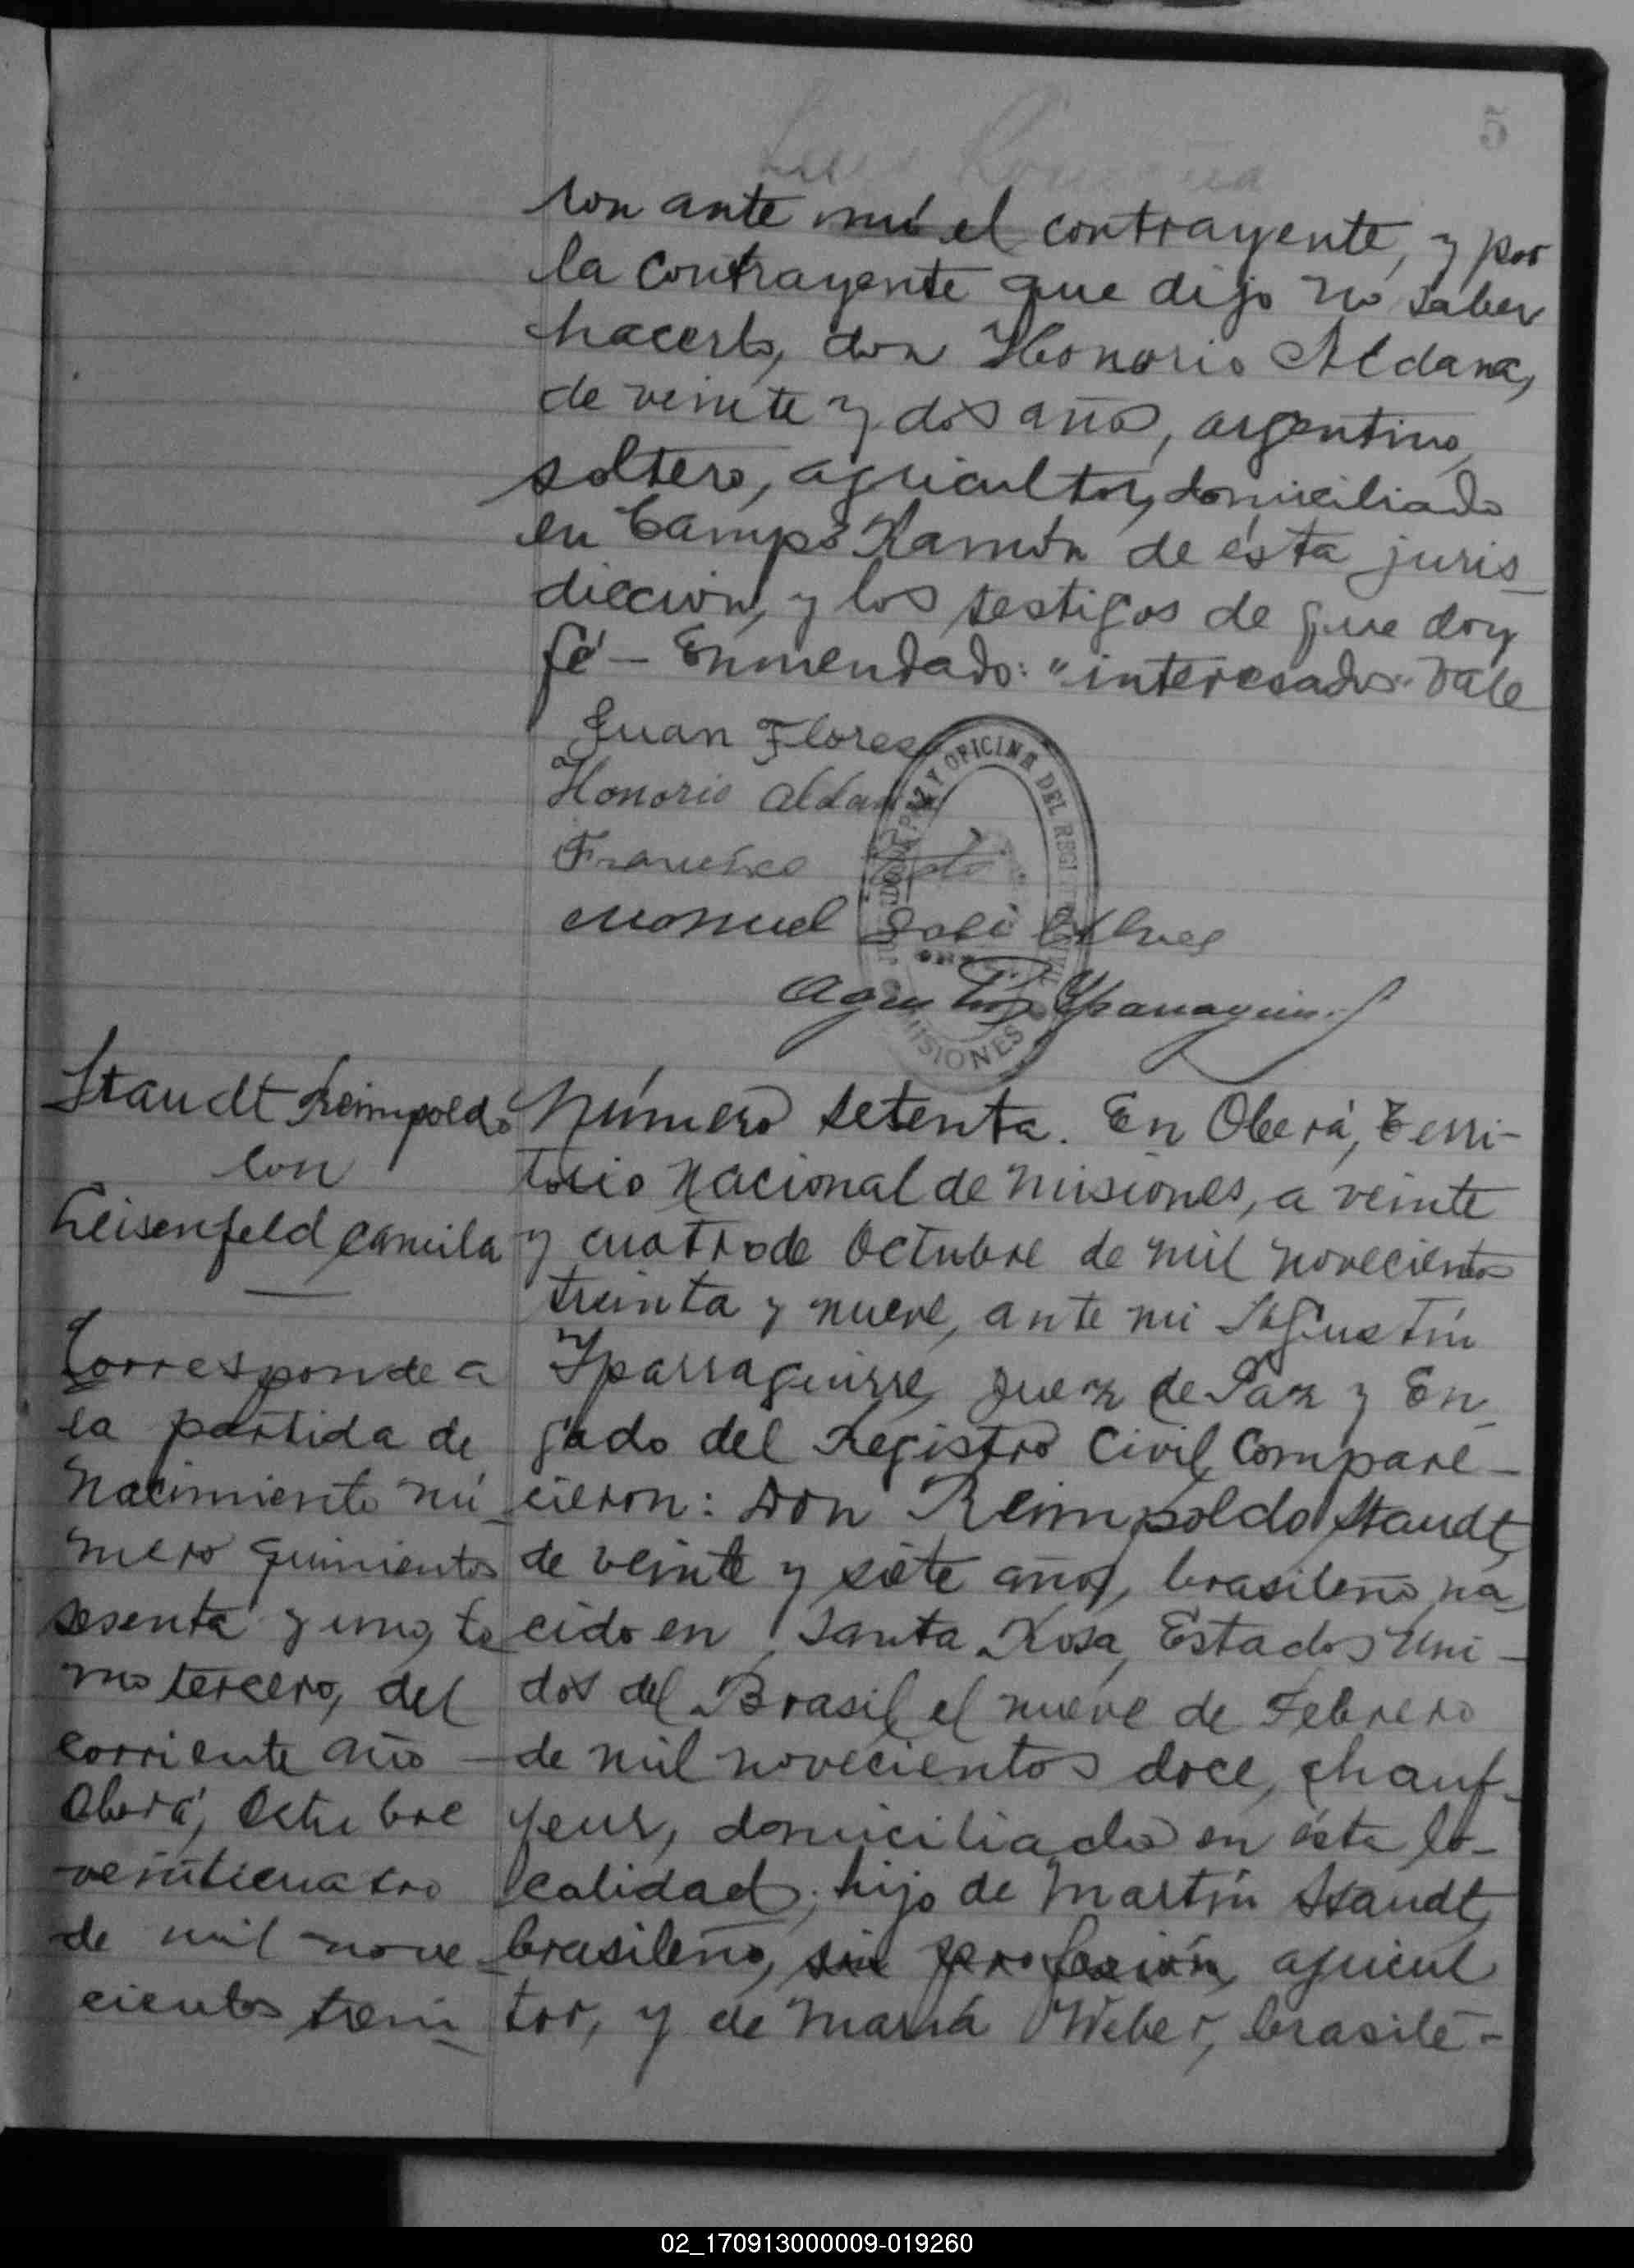 5
ron ante mí el contrayente, y por
la contrayente que dijo no saber
hacerlo, don Honorio Aldana,
de veinte y dos años, argentino,
soltero, agricultor, domiciliado
en Campo Ramón de ésta juris_
dicción, y los testigos de que doy
fé — Enmendado: "interesados" Vale
Juan Flores
Honorio Aldana
Francisco
Manuel José Alves
OFICINA DEL REGI
MISIONES
Staudt Reimpoldo
con
Leisenfeld Camila
Corresponde a
la partida de
Nacimiento nú_
mero quinientos
sesenta y uno, to
mo tercero, del
corriente año —
Oberá, Octubre
veinticuatro
de mil nove_
cientos trein_
Número setenta. En Oberá, Terri-
torio Nacional de Misiones, a veinte
y cuatro de Octubre de mil novecientos
treinta y nueve, ante mi Agustín
Yparraguirre, Juez de Paz y En_
gado del Registro Civil, compare-
cieron: Don Reimpoldo Staudt,
de veinte y siete años, brasileño, na_
cido en Santa Rosa, Estados Uni-
dos del Brasil, el nueve de Febrero
de mil novecientos doce, chauf-
feur, domiciliado en ésta lo-
calidad; hijo de Martín Staudt,
brasileño, sin profesión, agricul
tor, y de María Weber, brasile-
02_170913000009-019260